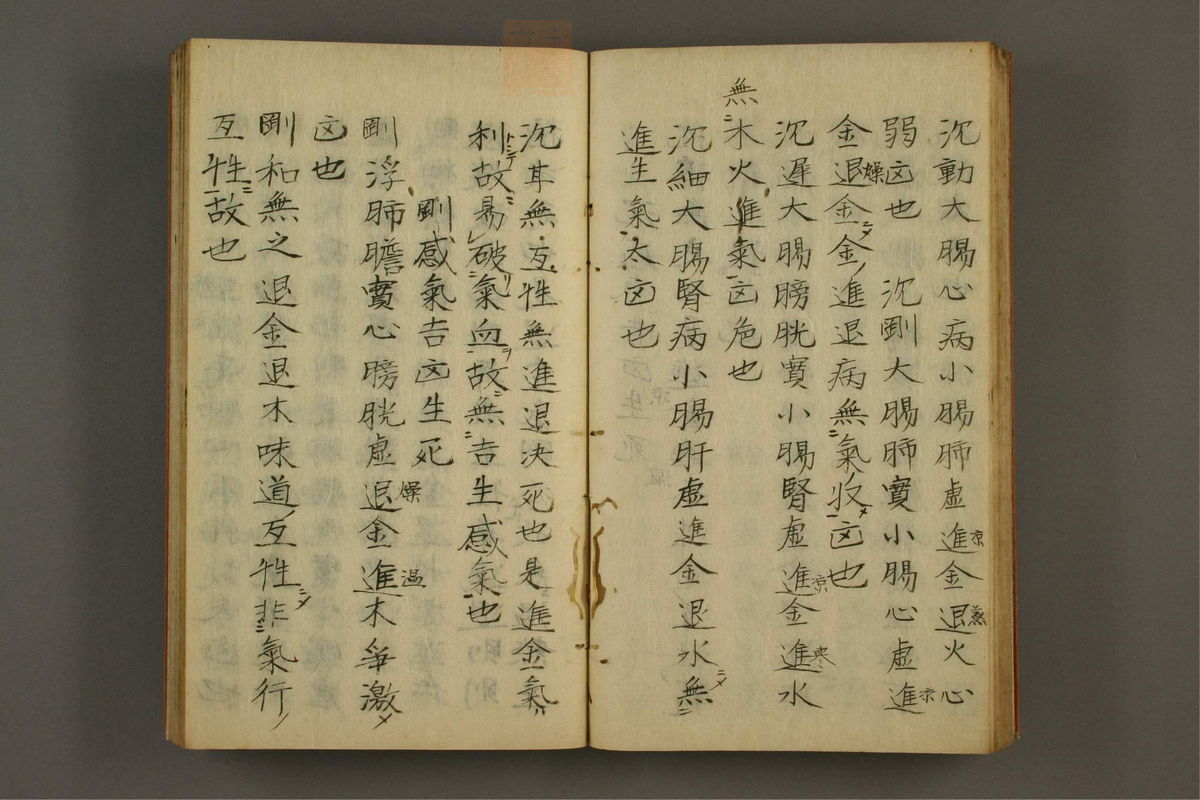 沉動大腸心病小腸肺虚進京金退蒸火心
弱凶也　沉剛大腸肺實小腸心虚進京
金退燥金金進退病無氣収凶也
沉遅大腸膀胱實小腸腎虚進京金進寒水
無木火進氣凶危也
沉細大腸腎病小腸肝虚進金退水無
進生氣太凶也
沉耳無互性無進退决死也是進金氣
利故易破氣血故無吉生感氣也
剛感氣吉凶生死
剛浮肺膽實心膀胱虚退燥金進温木爭激
凶也
剛和無之退金退木味道互性非氣行
互性故也